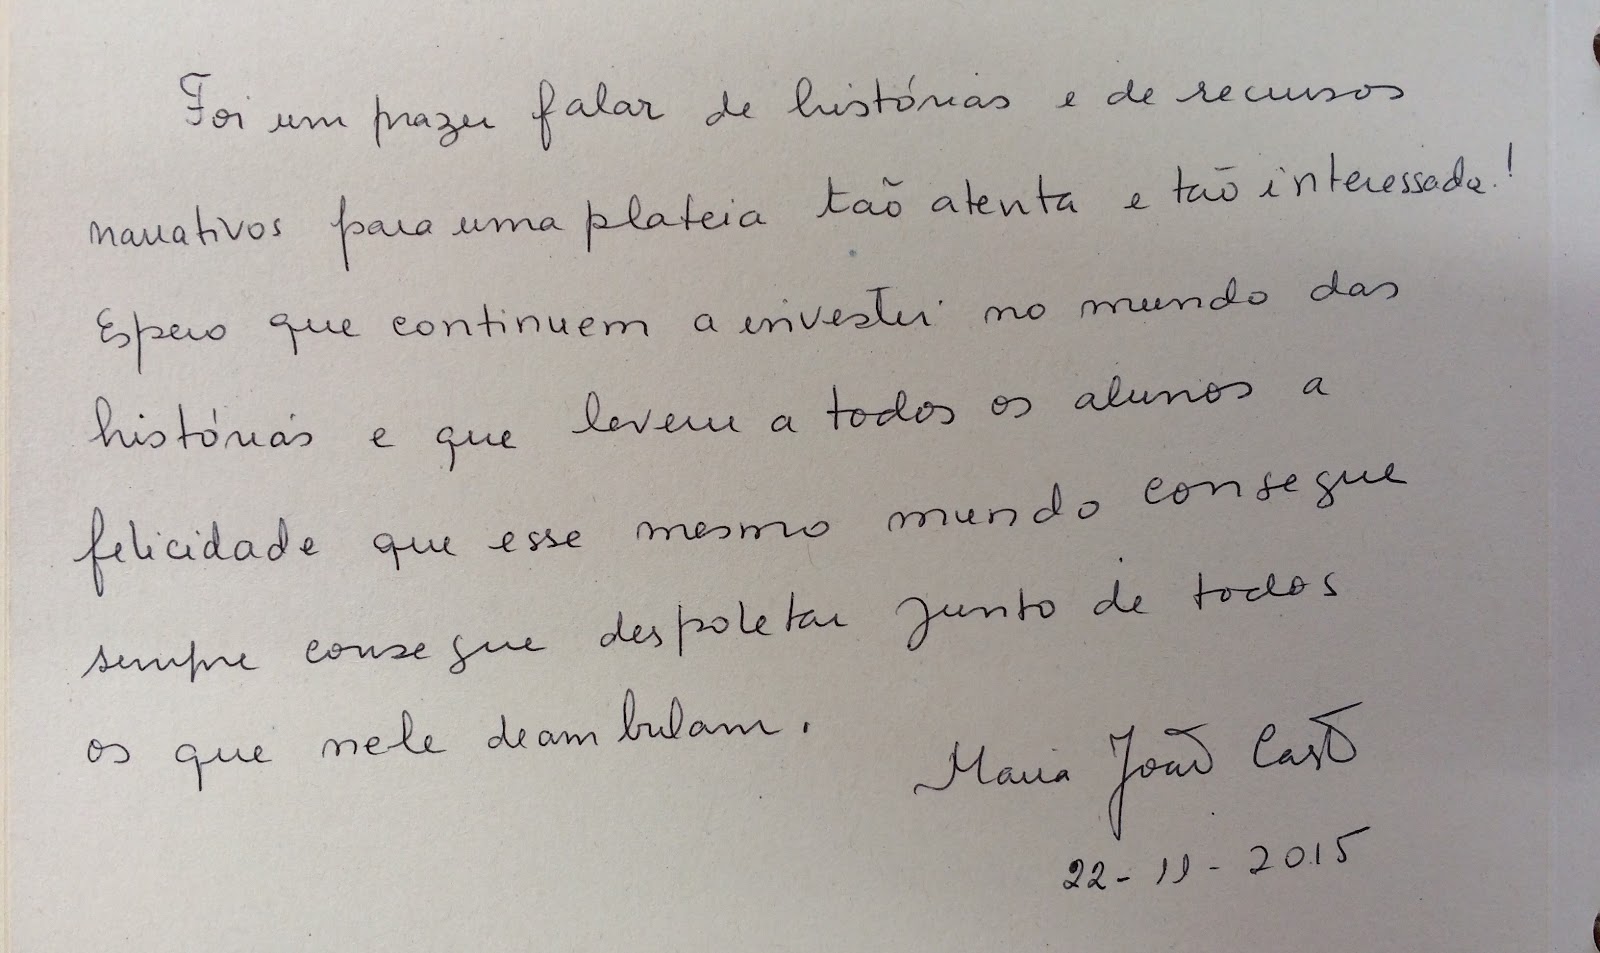 Foi um prazer falar de histórias e de recursos
narrativos para uma plateia tão atenta e tão interessada!
Espero que continuem a investir no mundo das
histórias e que levem a todos os alunos a
felicidade que esse mesmo mundo consegue
sempre consegue despoletar junto de todos
os que nele deambulam.
Maria João Castro
22-11-2015